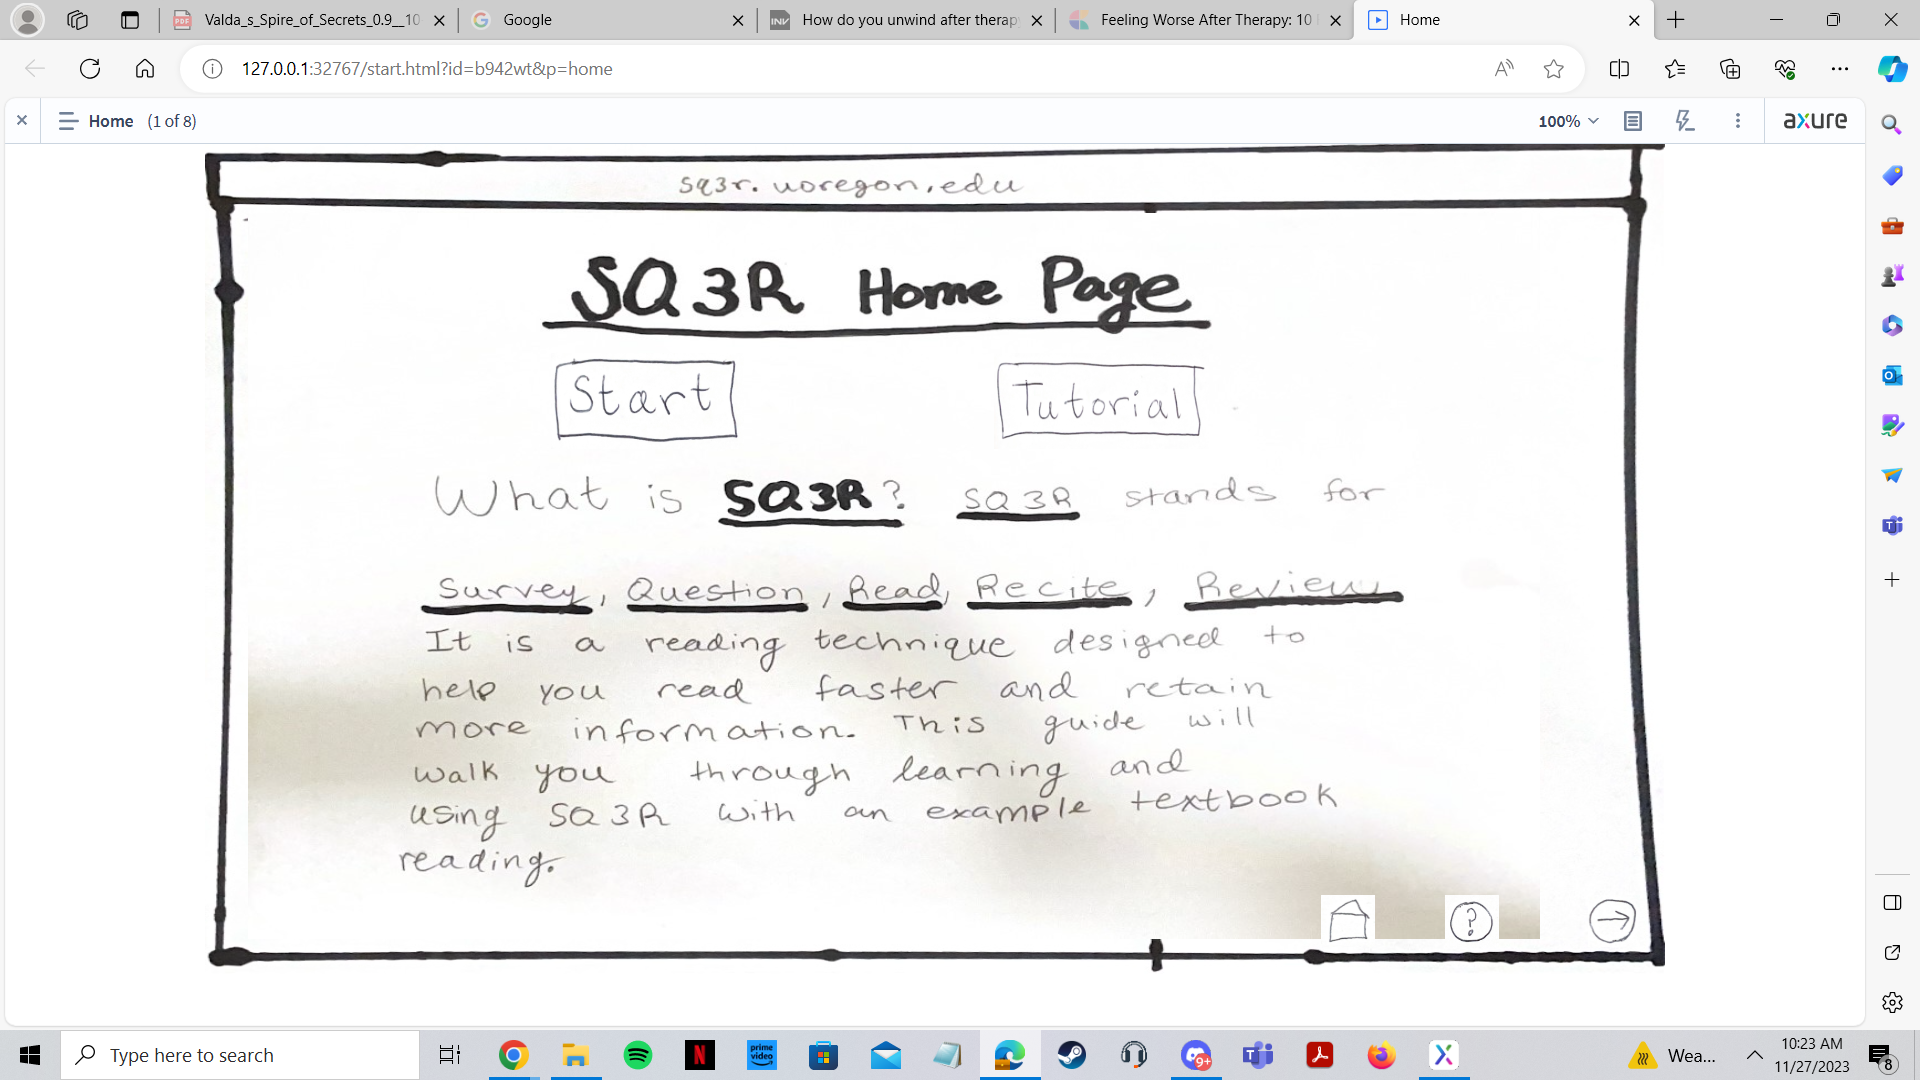 Valda_s_Spire_of_Secrets_0.9__10
Google
How do you unwind after therap
Feeling Worse After Therapy: 10
Home
127.0.0.1:32767/start.html?id=b942wt&p=home
Home (1 of 8)
100%
axure
sq3r.uoregon.edu
SQ3R Home Page
Start
Tutorial
What is SQ3R? SQ3R stands for
Survey, Question, Read, Recite, Review
It is a reading technique designed to
help you read faster and retain
more information. This guide will
walk you through learning and
using SQ3R with an example textbook
reading.
?
Type here to search
9+
Wea...
10:23 AM
11/27/2023
8